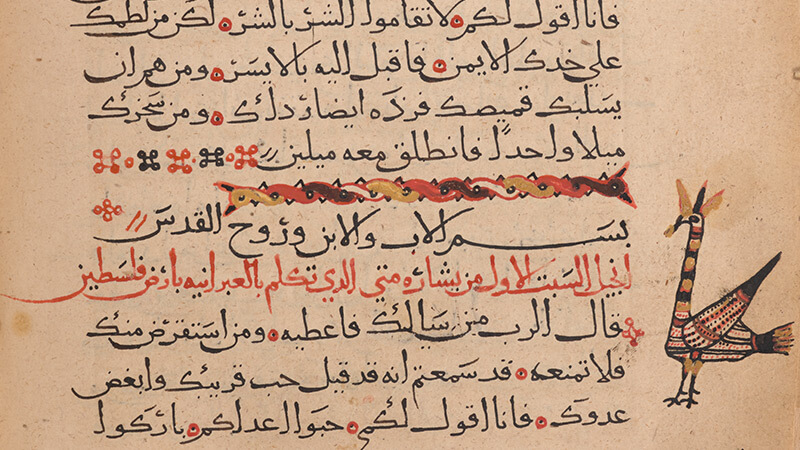 فانا اقول لكم لا تقاموا الشر بالشر لكن من لطمك
علي خدك الايمن فاقبل اليه بالايسر ومن هم ان
يسلبك قميصك فزده ايضا ردائك ومن سخرك
ميلا واحدا فانطلق معه ميلين
بسم الاب والابن وروح القدس
انجيل السبت الاول من بشاره متي الذي تكلم بالعبرانيه بارض فلسطين
قال الرب من سالك فاعطيه ومن استقرض منك
فلا تمنعه قد سمعتم انه قد قيل حب قريبك وابغض
عدوك فانا اقول لكم حبوا اعداكم باركوا